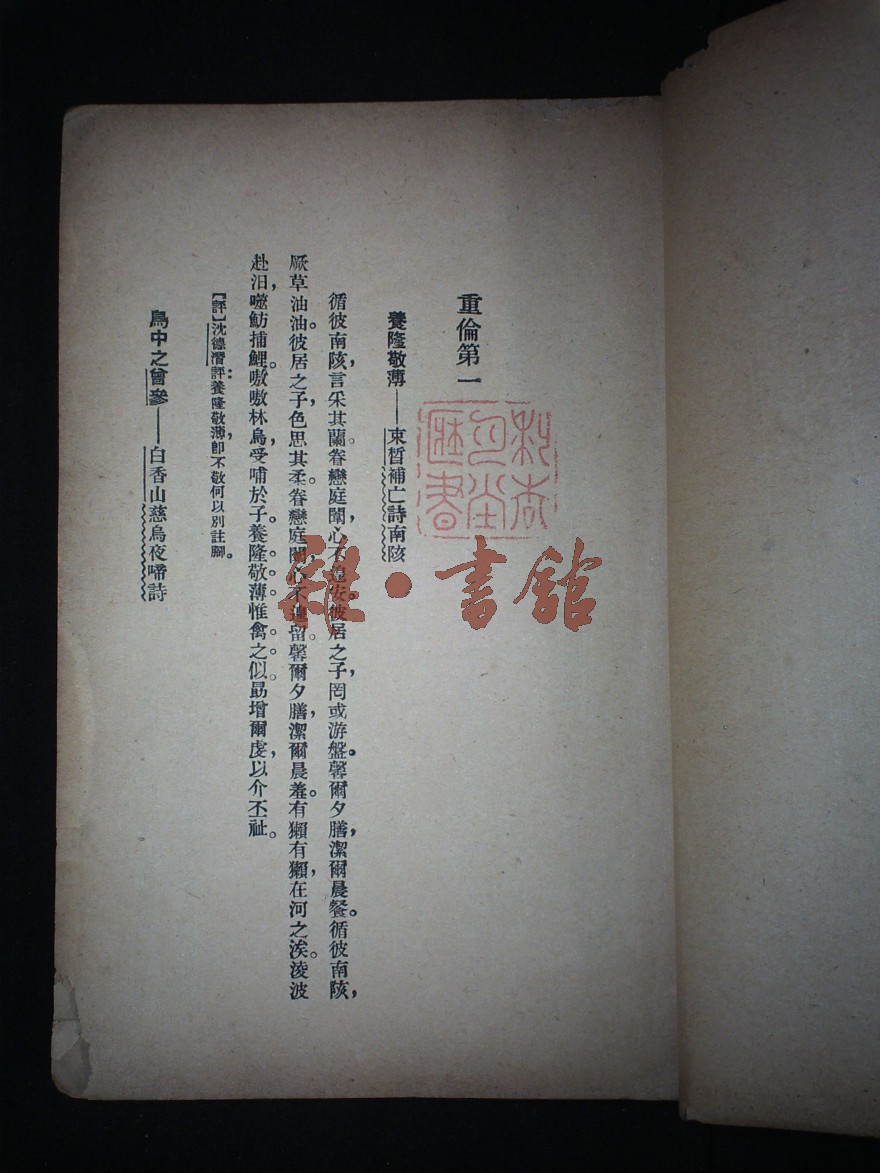 重倫第一
養隆敬薄——束晳補亡詩南陔
循彼南陔，言采其蘭。眷戀庭闈，心不遑安。彼居之子，罔或游盤。馨爾夕膳，潔爾晨餐。循彼南陔，
厥草油油。彼居之子，色思其柔。眷戀庭闈，心不遑留。馨爾夕膳，潔爾晨羞。有獺有獺，在河之涘。淩波
赴汨，噬魴捕鯉。嗷嗷林烏，受哺於子。養隆敬薄，惟禽之似。勗增爾虔，以介丕祉。
【評】沈德潛評：養隆敬薄，卽不敬何以別註腳。
鳥中之曾參——白香山慈烏夜啼詩
雜·書館